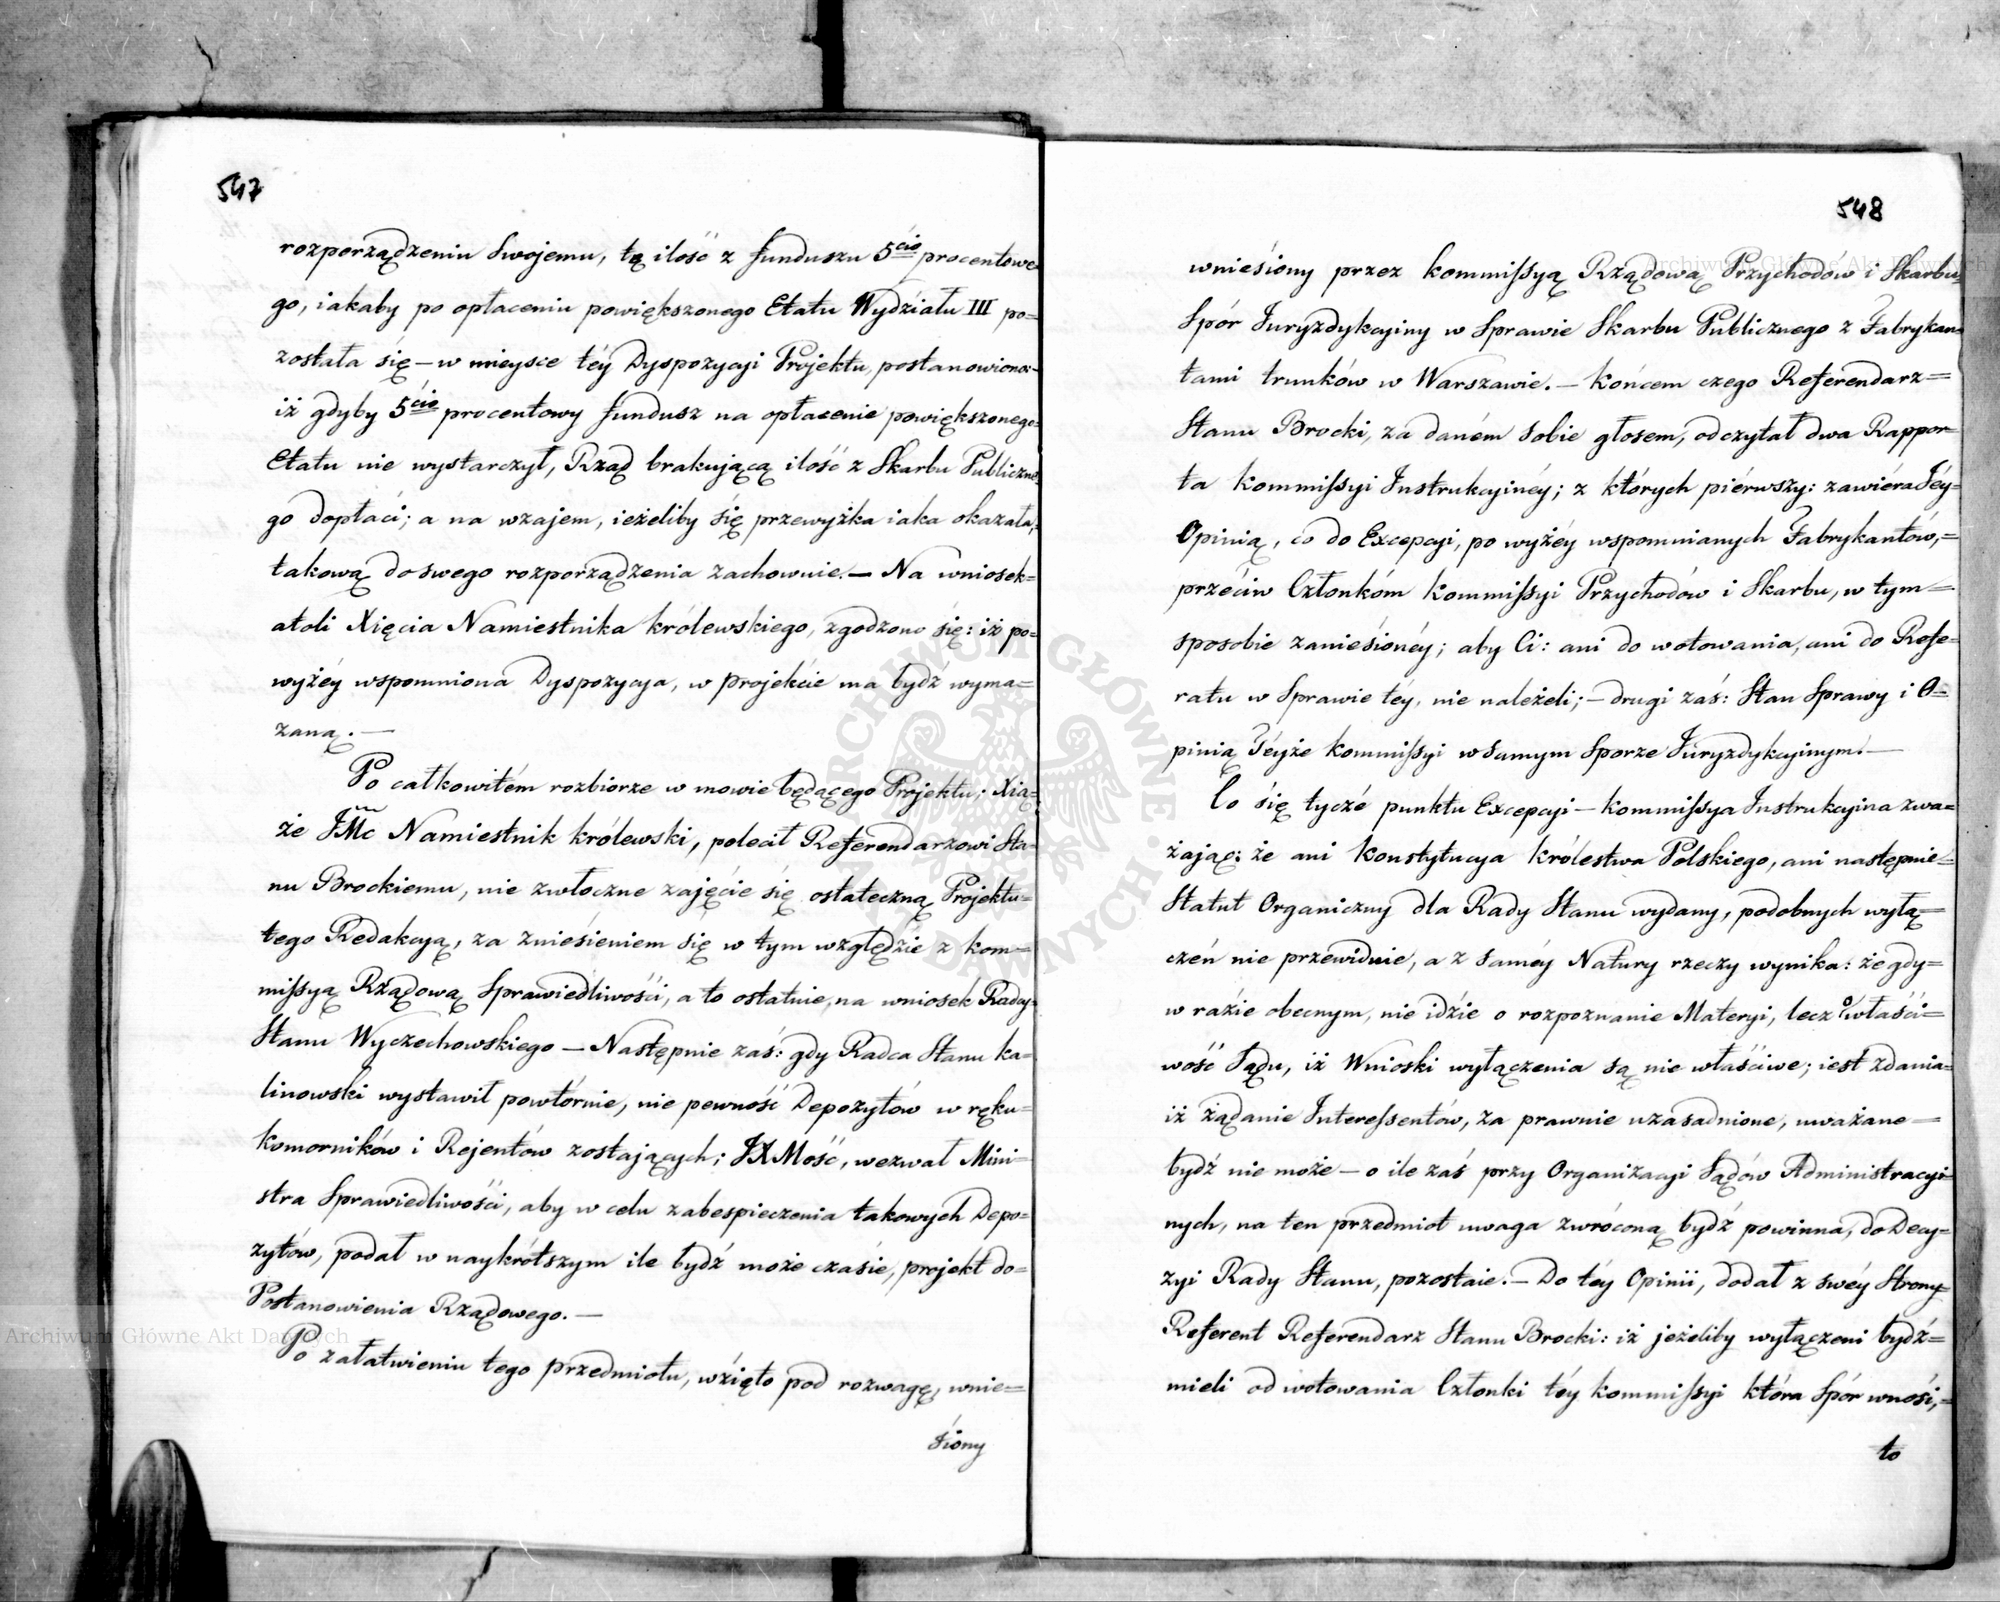 547
rozporządzeniu Swojemu, tę ilość z funduszu 5cio procentowe=
go, iakaby po opłaceniu powiększonego Etatu Wydziału III po=
została się – w mieysce téy Dyspozycyi Projektu, postanowiono:
iż gdyby 5cio procentowy fundusz na opłacenie powiększonego=
Etatu nie wystarczył, Rząd brakującą ilość z Skarbu Publiczne=
go dopłaci; a na wzajem, ieżeliby się przewyżka iaka okazała,=
takową do swego rozporządzenia zachownie. – Na wniosek=
atoli Xięcia Namiestnika królewskiego, zgodzono się: iż po=
wyżéy wspomniona Dyspozycya, w projekcie ma bydź wyma=
zaną. –
Po całkowitém rozbiorze w mowie będącego Projektu; Xią=
że JMc Namiestnik królewski, polecił Referendarzowi Sta=
nu Brockiemu, nie zwłoczne zajęcie się ostateczną Projektu=
tego Redakcyą, za zniesieniem się w tym względzie z kom=
missyą Rządową Sprawiedliwości, a to ostatnie, na wniosek Radcy=
Stanu Wyczechowskiego – Następnie zaś: gdy Radca Stanu ka=
linowski wystawił powtórnie, nie pewność Depozytów w ręku=
komorników i Rejentów zostających; JXMość, wezwał Mini=
stra Sprawiedliwości, aby w celu zabespieczenia takowych Depo=
zytów, podał w naykrótszym ile bydź może czasie, projekt do=
Postanowienia Rządowego. –
Po załatwieniu tego przedmiotu, wzięto pod rozwagę, wnie=
siony
548
wniesiony przez kommissyą Rządową Przychodów i Skarbu=
Spór Juryzdykcyiny w Sprawie Skarbu Publicznego z Fabrykan=
tami trunków w Warszawie. – końcem czego Referendarz=
Stanu Brocki, za daném sobie głosem, odczytał dwa Rappor=
ta kommissyi Instrukcyinéy; z których piérwszy: zawiéra Téy=
Opinią, co do Excepcyi, po wyżéy wspomnianych Fabrykantów,=
przeciw Członkóm kommissyi Przychodów i Skarbu, w tym=
sposobie zaniesionéy; aby Ci: ani do wotowania, ani do Refe=
ratu w Sprawie téy, nie należeli; – drugi zaś: Stan Sprawy i O=
pinią Téyże kommissyi w samym Sporze Juryzdykcyinym. –
Co się tycze punktu Excepcyi – kommissya Instrukcyina zwa=
żając: że ani konstytucya królestwa Polskiego, ani następnie=
Statut Organiczny dla Rady Stanu wydany, podobnych wyłą=
czeń nie przewiduie, a z saméy Natury rzeczy wynika: że gdy=
w razie obecnym, nie idzie o rozpoznanie Materyi, lecz o właści=
wość Sądu, iż Wnioski wyłączenia są nie właściwe; iest zdania=
iż żądanie Interessentów, za prawnie uzasadnione, uważane=
bydź nie może – o ile zaś przy Organizacyi Sądów Administracyi=
nych, na ten przedmiot uwaga zwróconą bydź powinna, do Decy=
zyi Rady Stanu, pozostaie. – Do téy Opinii, dodał z swéy Strony=
Referent Referendarz Stanu Brocki: iż jeżeliby wyłączeni bydź=
mieli od wotowania Członki téy kommissyi która Spór wnosi,=
to